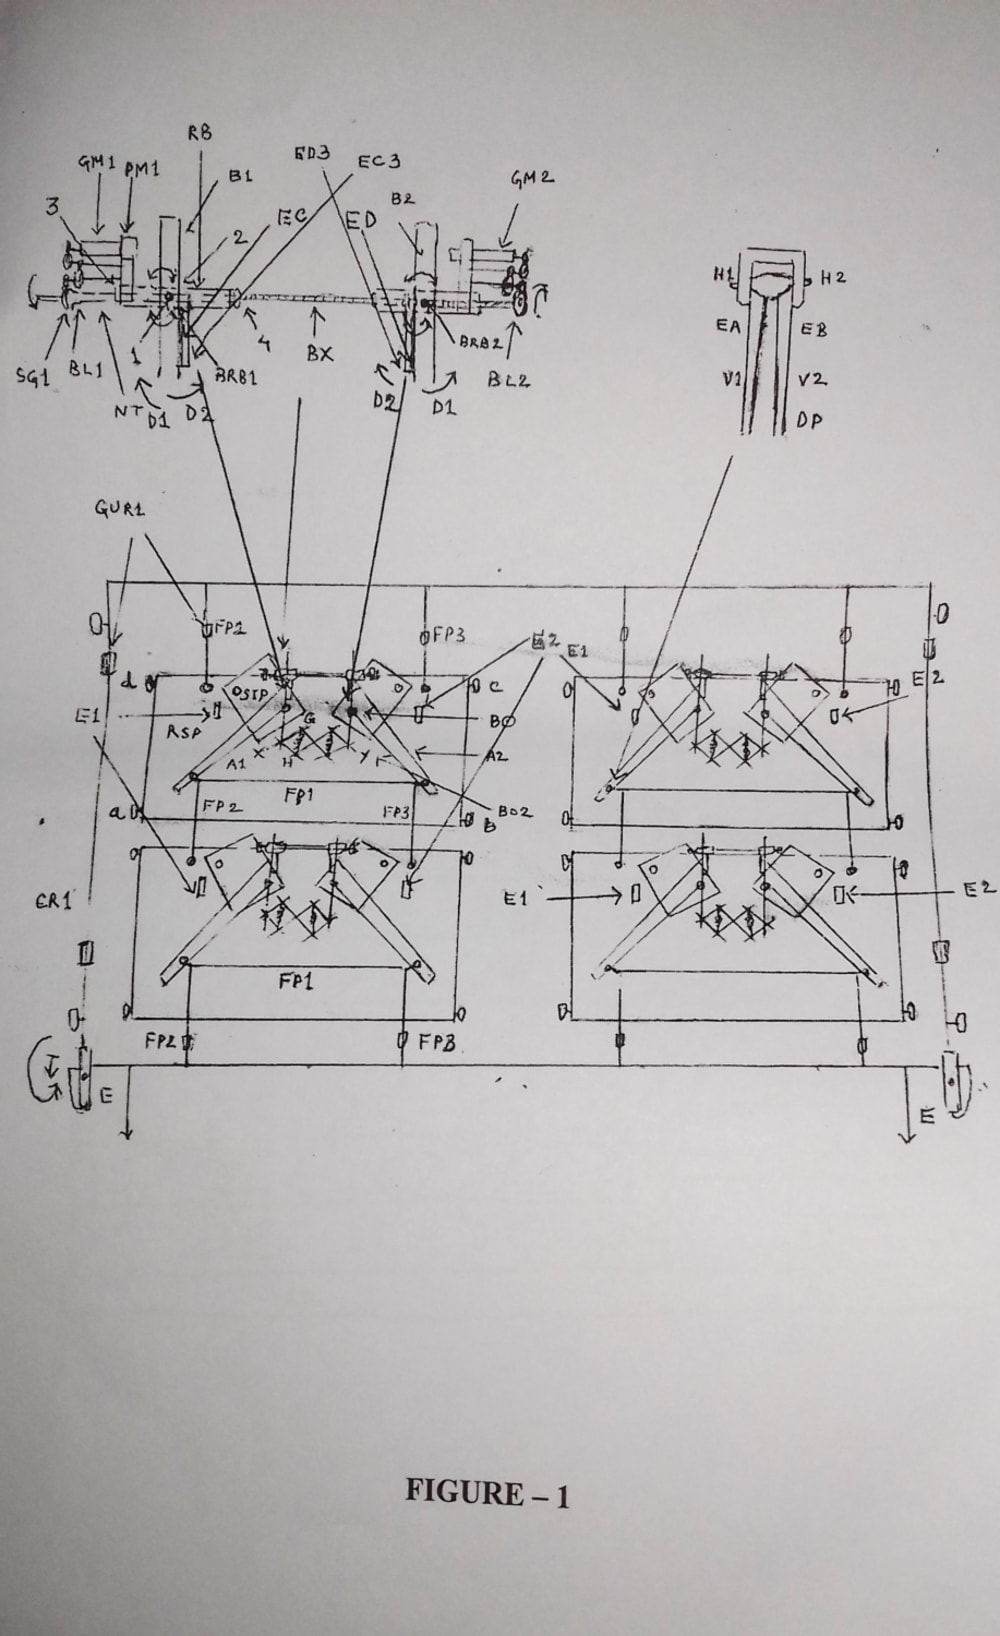 RB
GM1 PM1 B1 ED3 EC3 GM2
3 2 EC ED B2
H1 H2
EA EB
SG1 BL1 1 BRB1 4 BX BRB2 BL2
V1 V2
NT D1 D2 D2 D1 DP
GUR1
FP2 FP3 E2 E1
d SIP c E2
E1 RSP G BO
A1 H X Y A2
FP2 FP1 FP3 BO2
a B
ER1 E1 E2
FP1
FP2 FP3
E E
FIGURE – 1